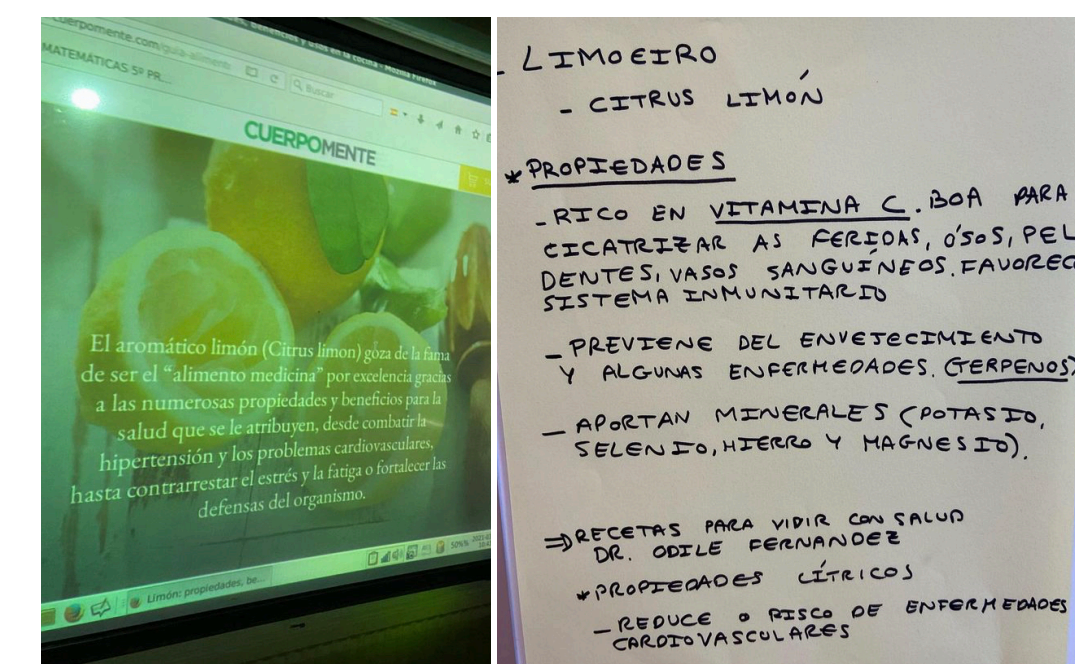 cuerpomente.com/guia-alimento
Buscar
MATEMÁTICAS 5º PR...
CUERPOMENTE
El aromático limón (Citrus limon) goza de la fama
de ser el “alimento medicina” por excelencia gracias
a las numerosas propiedades y beneficios para la
salud que se le atribuyen, desde combatir la
hipertensión y los problemas cardiovasculares,
hasta contrarrestar el estrés y la fatiga o fortalecer las
defensas del organismo.
50%
Limón: propiedades, be...
- LIMOEIRO
- CITRUS LIMÓN
* PROPIEDADES
- RICO EN VITAMINA C. BOA PARA
CICATRIZAR AS FERIDAS, ÓSOS, PEL
DENTES, VASOS SANGUÍNEOS. FAVOREC
SISTEMA INMUNITARIO
- PREVIENE DEL ENVEJECIMIENTO
Y ALGUNAS ENFERMEDADES. (TERPENOS)
- APORTAN MINERALES (POTASIO,
SELENIO, HIERRO Y MAGNESIO).
⇒ RECETAS PARA VIDIR CON SALUD
DR. ODILE FERNANDEZ
* PROPIEDADES CÍTRICOS
- REDUCE O RISCO DE ENFERMEDADES
CARDIOVASCULARES